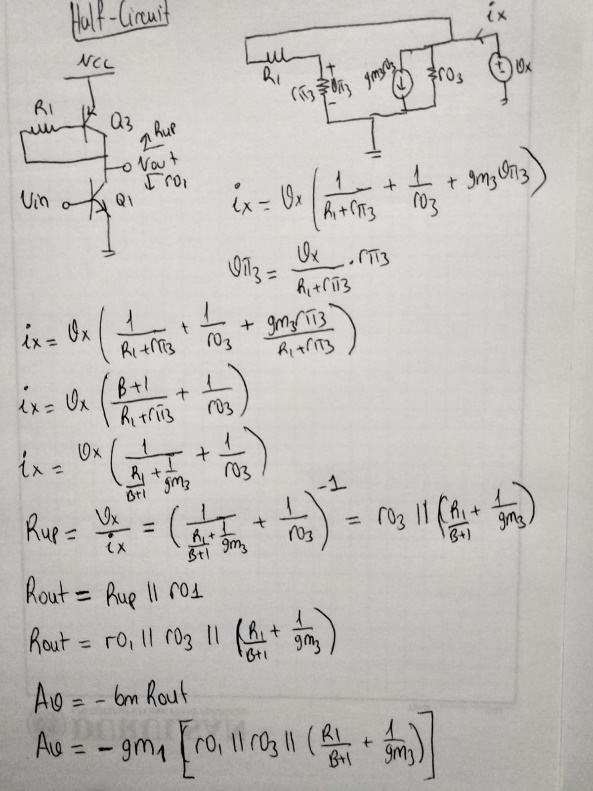 Half-Circuit
VCC
R1
Q3
Rup
Vout
ro1
Vin
Q1
ix
R1
rπ3
+
ϑπ3
-
gm3ϑπ3
ro3
+
-
ϑx
ix = ϑx ( 1/(R1+rπ3) + 1/ro3 + gm3ϑπ3 )
ϑπ3 = ϑx/(R1+rπ3) . rπ3
ix = ϑx ( 1/(R1+rπ3) + 1/ro3 + gm3rπ3/(R1+rπ3) )
ix = ϑx ( (B+1)/(R1+rπ3) + 1/ro3 )
ix = ϑx ( 1/(R1/(B+1) + 1/gm3) + 1/ro3 )
Rup = ϑx/ix = ( 1/(R1/(B+1) + 1/gm3) + 1/ro3 )^-1 = ro3 || (R1/(B+1) + 1/gm3)
Rout = Rup || ro1
Rout = ro1 || ro3 || (R1/(B+1) + 1/gm3)
Aϑ = - Gm Rout
Aϑ = - gm1 [ ro1 || ro3 || ( R1/(B+1) + 1/gm3 ) ]